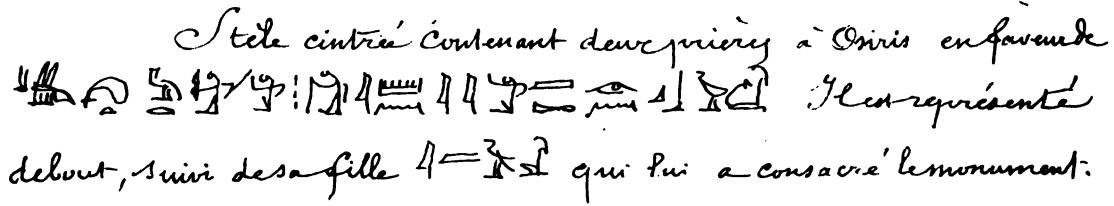 Stèle cintrée contenant deux prières à Osiris en faveur de
Il est représenté
debout, suivi de sa fille qui lui a consacré le monument.